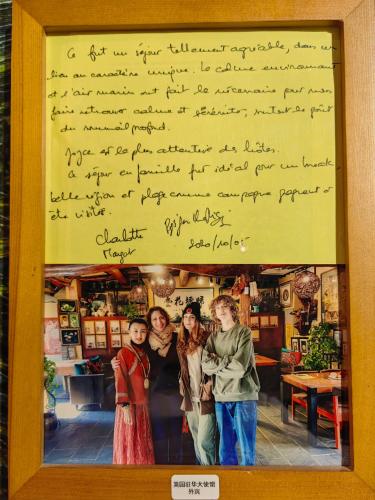 Ce fut un séjour tellement agréable, dans un
lieu au caractère unique. Le calme environnant
et l'air marin ont fait le nécessaire pour nous
faire retrouver calme et sérénité, surtout le goût
du sommeil profond.
Joyce est la plus attentive des hôtes.
Ce séjour en famille fut idéal pour un break
belle région et plage comme campagne gagnent à
être visité.
Charlotte
Margot
2020/10/05
英国驻华大使馆
外宾